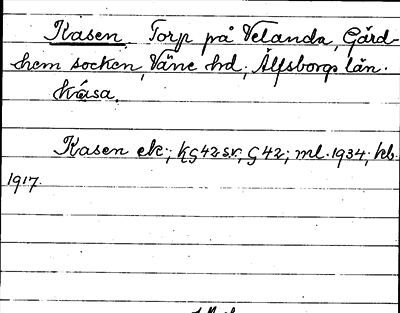 Kasen. Torp på Velanda, Gärd-
hem socken, Väne hd, Älfsborgs län.
Kåsa.
Kasen ek; KG42sv, G42; ml. 1934; kb.
1917.